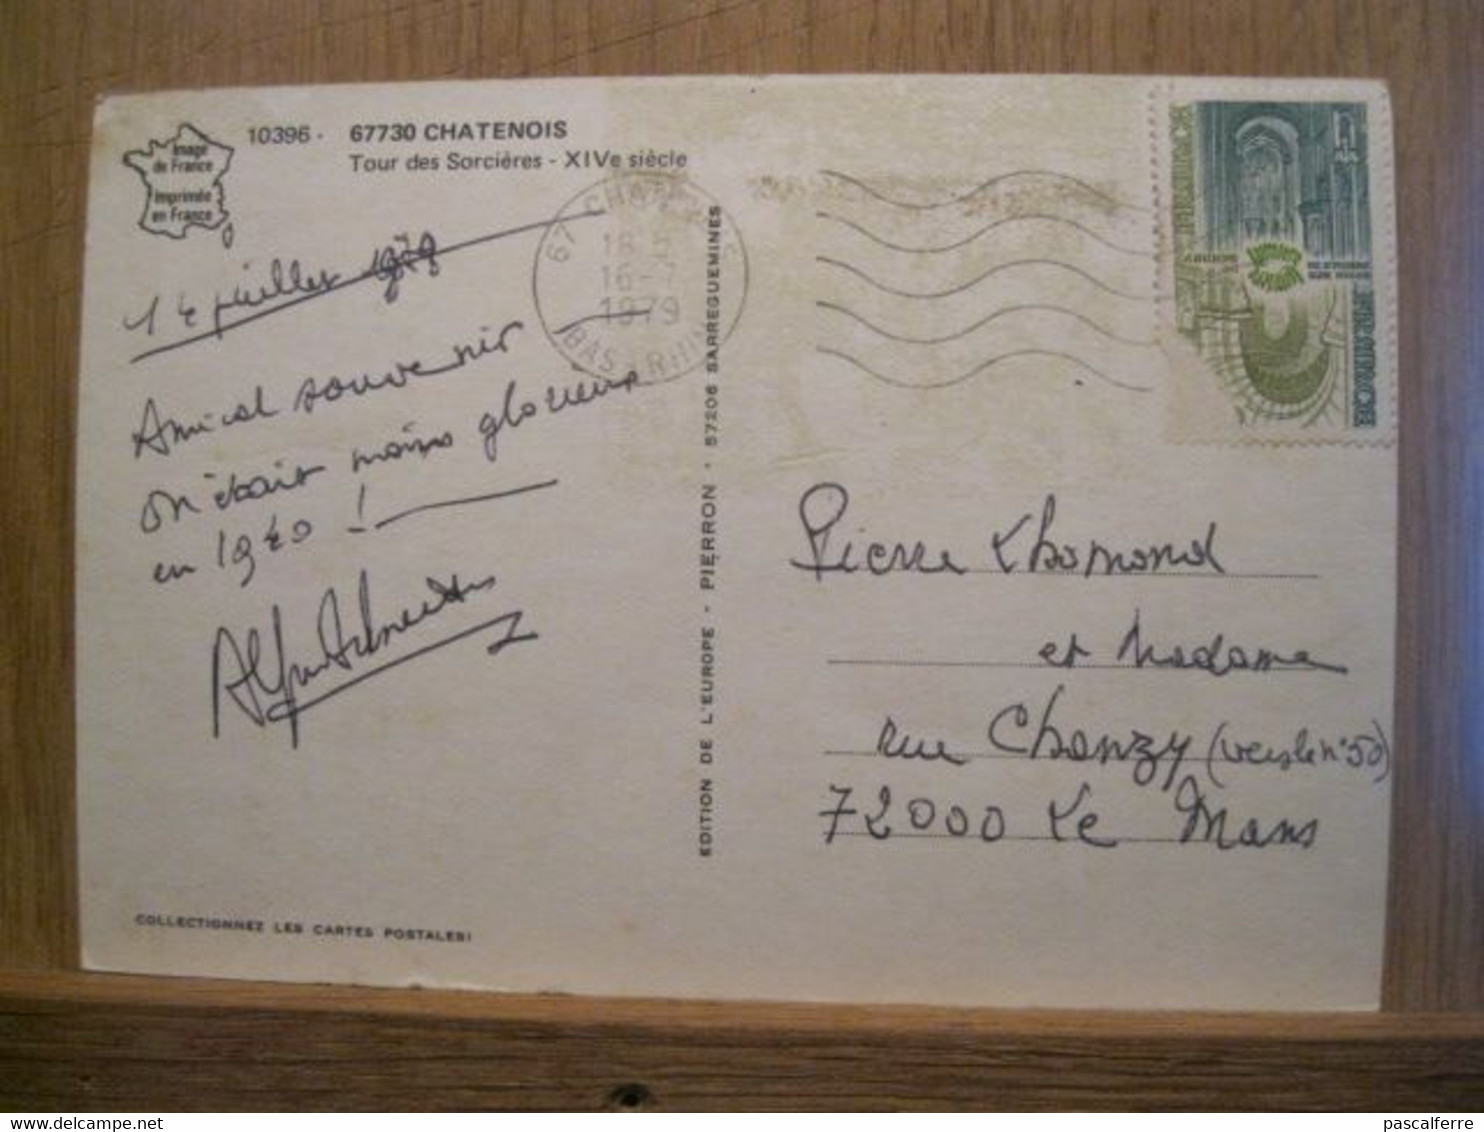 Image
de France
Imprimée
en France
10396 - 67730 CHATENOIS
Tour des Sorcières - XIVe siècle
14 juillet 1979
Amical souvenir
On était moins glorieux
en 1940 !
67 CHATENOIS
16-7
1979
BAS-RHIN
EDITION DE L'EUROPE - PIERRON - 57206 SARREGUEMINES
FRANCE
Pierre Lhomond
et Madame
rue Chanzy (vers le n° 50)
72000 Le Mans
COLLECTIONNEZ LES CARTES POSTALES!
pascalferre